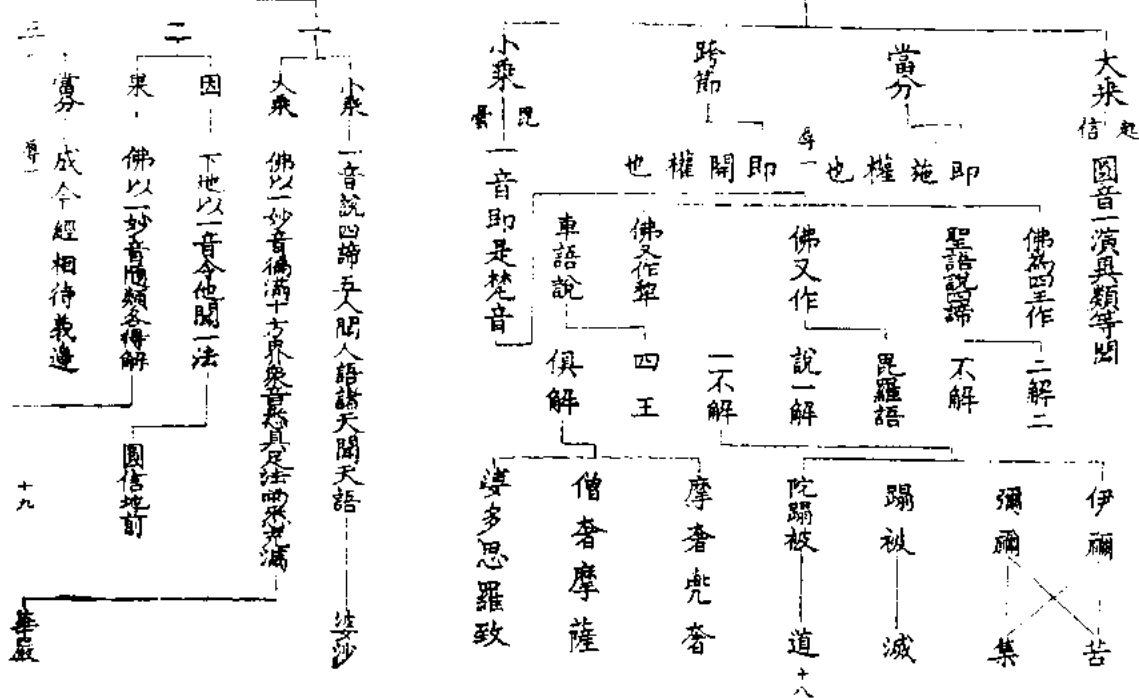 大乘
起信
圓音一演異類等聞
當分
即施權也
尋一
跨節
即開權也
小乘
毘曇
一音即是梵音
佛為四王作
聖語說四諦
二解二
不解
佛又作
毘羅語
說一解
一不解
佛又作犂
車語說
四王
俱解
伊禰
苦
彌禰
集
蹋被
滅
陀蹋被
道
十八
摩奢兜奢
僧奢摩薩
婆多思羅致
一
小乘
一音說四諦五人聞人語諸天聞天語
婆沙
大乘
佛以一妙音徧滿十方界眾音悉具足法雨悉充滿
華嚴
二
因
下地以一音令他聞一法
圓信地前
果
佛以一妙音隨類各得解
三
當分
成今經相待義邊
尋一
十九